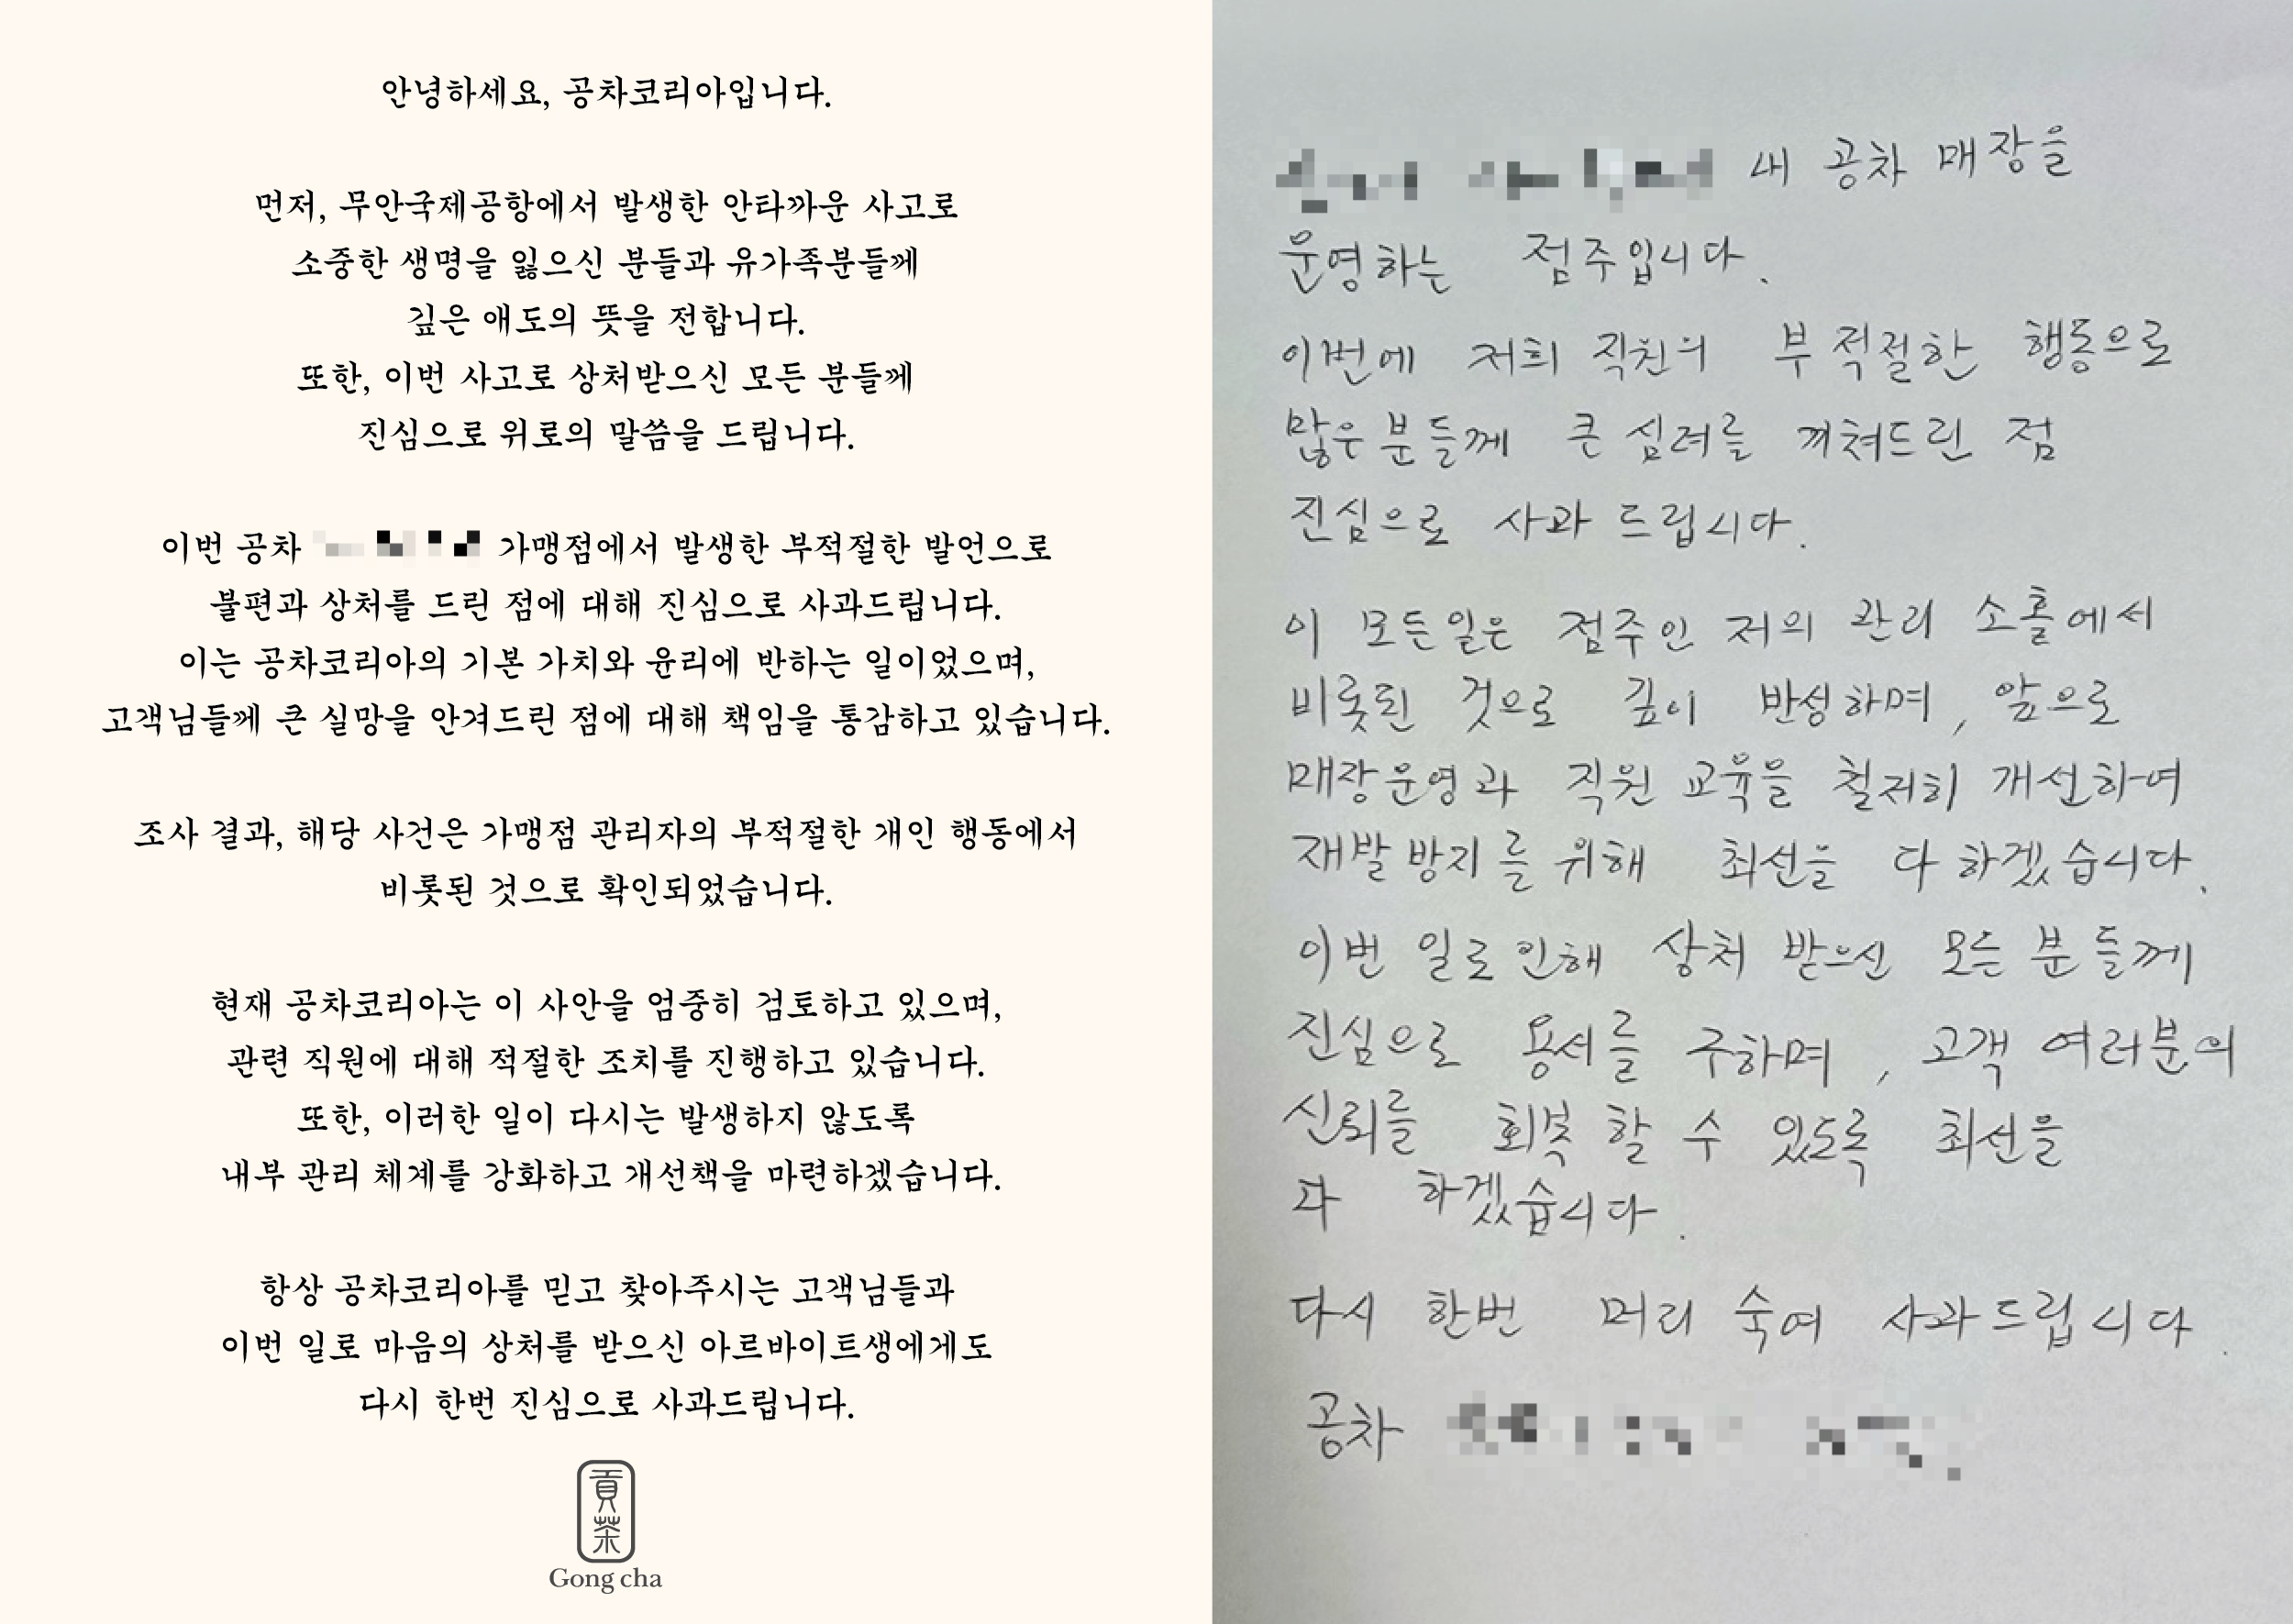 안녕하세요, 공차코리아입니다.
먼저, 무안국제공항에서 발생한 안타까운 사고로
소중한 생명을 잃으신 분들과 유가족분들께
깊은 애도의 뜻을 전합니다.
또한, 이번 사고로 상처받으신 모든 분들께
진심으로 위로의 말씀을 드립니다.
이번 공차 가맹점에서 발생한 부적절한 발언으로
불편과 상처를 드린 점에 대해 진심으로 사과드립니다.
이는 공차코리아의 기본 가치와 윤리에 반하는 일이었으며,
고객님들께 큰 실망을 안겨드린 점에 대해 책임을 통감하고 있습니다.
조사 결과, 해당 사건은 가맹점 관리자의 부적절한 개인 행동에서
비롯된 것으로 확인되었습니다.
현재 공차코리아는 이 사안을 엄중히 검토하고 있으며,
관련 직원에 대해 적절한 조치를 진행하고 있습니다.
또한, 이러한 일이 다시는 발생하지 않도록
내부 관리 체계를 강화하고 개선책을 마련하겠습니다.
항상 공차코리아를 믿고 찾아주시는 고객님들과
이번 일로 마음의 상처를 받으신 아르바이트생에게도
다시 한번 진심으로 사과드립니다.
貢茶
Gong cha
내 공차 매장을
운영하는 점주입니다.
이번에 저희 직원의 부적절한 행동으로
많은분들께 큰 심려를 끼쳐드린 점
진심으로 사과 드립니다.
이 모든일은 점주인 저의 관리 소홀에서
비롯된 것으로 깊이 반성하며, 앞으로
매장운영과 직원 교육을 철저히 개선하여
재발방지를 위해 최선을 다 하겠습니다.
이번 일로인해 상처 받으신 모든 분들께
진심으로 용서를 구하며, 고객 여러분의
신뢰를 회복 할 수 있도록 최선을
다 하겠습니다.
다시 한번 머리 숙여 사과드립니다.
공차